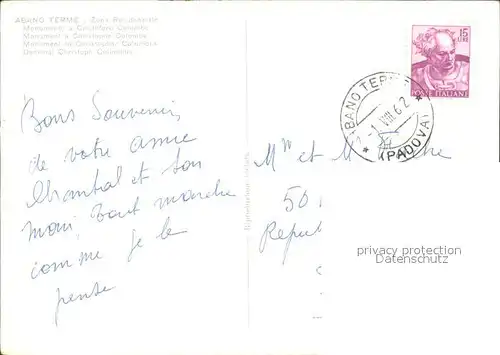 ABANO TERME - 
Monument a Cristoforo Colombo
Monument a Christophe Colombe
Monument to Christopher Columbus
Denkmal Christoph Columbus
15
LIRE
POSTE ITALIANE
ABANO TERME
-1 VIII 62
(PADOVA)
Bons Souvenirs
de votre amie
Chantal et son
mari, Tout marche
comme je le
pense
Mr et M
50
Repu
privacy protection
Datenschutz